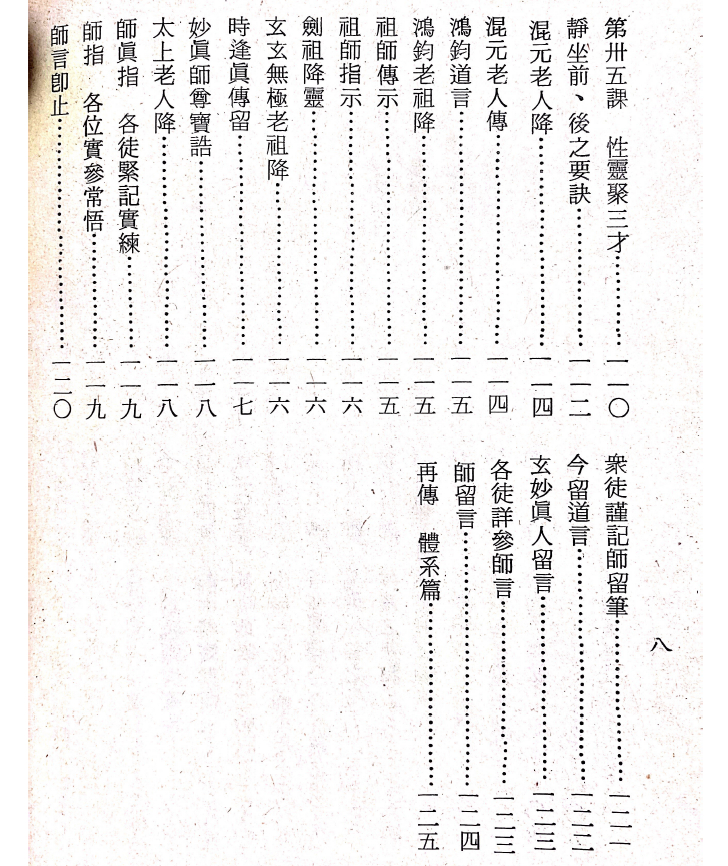 第卅五課　性靈聚三才…………一一〇
靜坐前、後之要訣…………一一二
混元老人降…………一一四
混元老人傳…………一一四
鴻鈞道言…………一一五
鴻鈞老祖降…………一一五
祖師傳示…………一一五
祖師指示…………一一六
劍祖降靈…………一一六
玄玄無極老祖降…………一一六
時逢眞傳留…………一一七
妙眞師尊寶誥…………一一八
太上老人降…………一一八
師眞指　各徒緊記實練…………一一九
師指　各位實參常悟…………一一九
師言卽止…………一二〇
衆徒謹記師留筆…………一二一
今留道言…………一二二
玄妙眞人留言…………一二三
各徒詳參師言…………一二三
師留言…………一二四
再傳　體系篇…………一二五
八